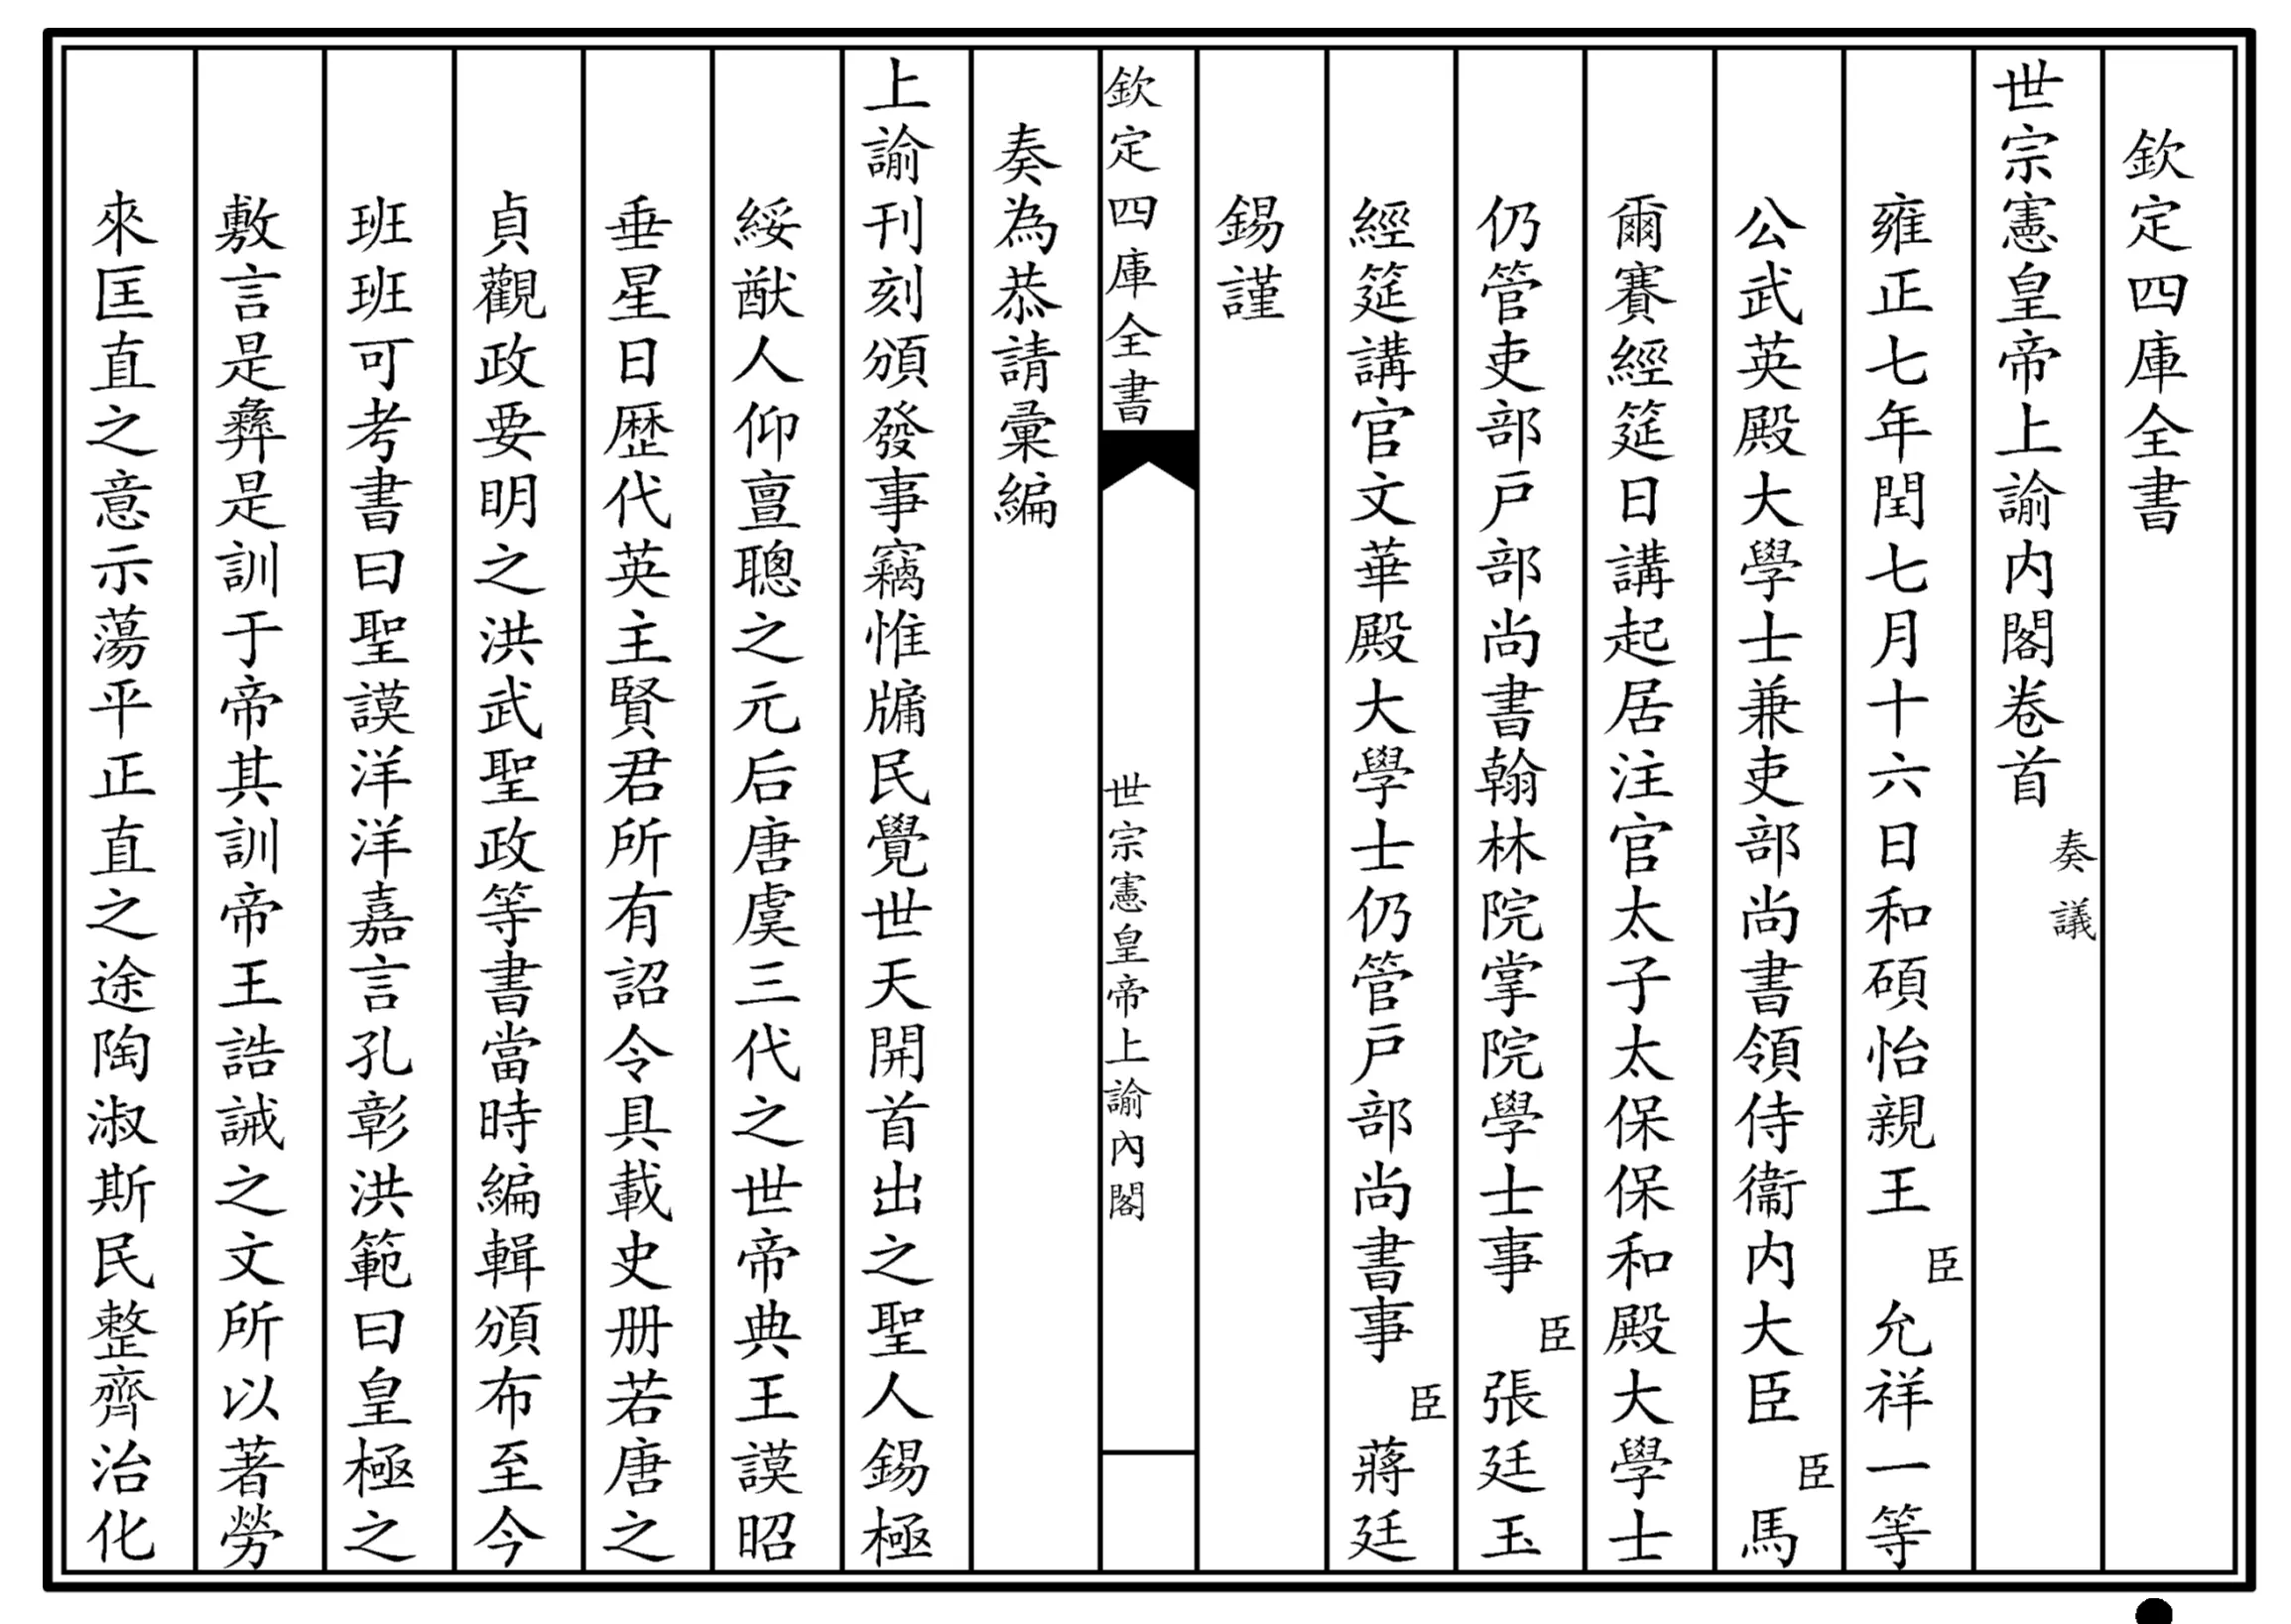 欽定四庫全書
世宗憲皇帝上諭内閣卷首
奏議
雍正七年閏七月十六日和碩怡親王臣允祥一等
公武英殿大學士兼吏部尚書領侍衞内大臣臣馬
爾賽經筵日講起居注官太子太保保和殿大學士
仍管吏部戸部尚書翰林院掌院學士事臣張廷玉
經筵講官文華殿大學士仍管戸部尚書事臣蔣廷
錫謹
欽定四庫全書
世宗憲皇帝上諭內閣
奏為恭請彚編
上諭刊刻頒發事竊惟牖民覺世天開首出之聖人錫極
綏猷人仰亶聰之元后唐虞三代之世帝典王謨昭
垂星日歴代英主賢君所有詔令具載史册若唐之
貞觀政要明之洪武聖政等書當時編輯頒布至今
班班可考書曰聖謨洋洋嘉言孔彰洪範曰皇極之
敷言是彝是訓于帝其訓帝王誥誡之文所以著勞
來匡直之意示蕩平正直之途陶淑斯民整齊治化